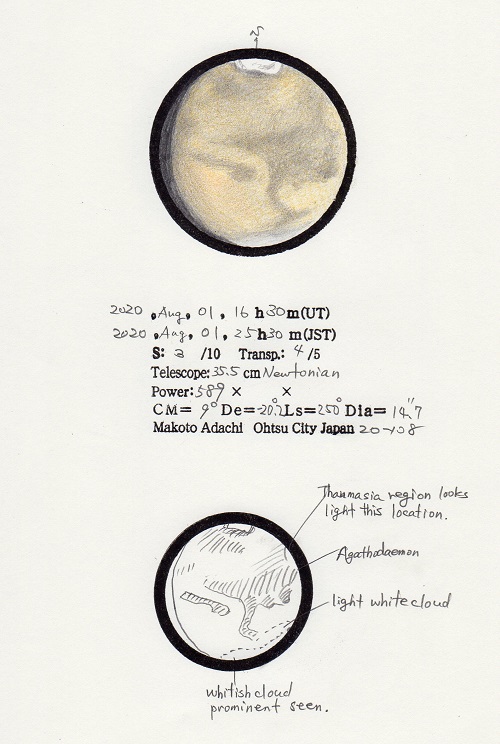 2020, Aug, 01, 16 h 30 m (UT)
2020, Aug, 01, 25 h 30 m (JST)
S: 3 /10 Transp.: 4 /5
Telescope: 35.5 cm Newtonian
Power: 589 × ×
CM= 9° De= -20.2° Ls= 250° Dia= 14".7
Makoto Adachi Ohtsu City Japan
Thaumasia region looks
light this location.
Agathodaemon
light white cloud
whitish cloud
prominent seen.